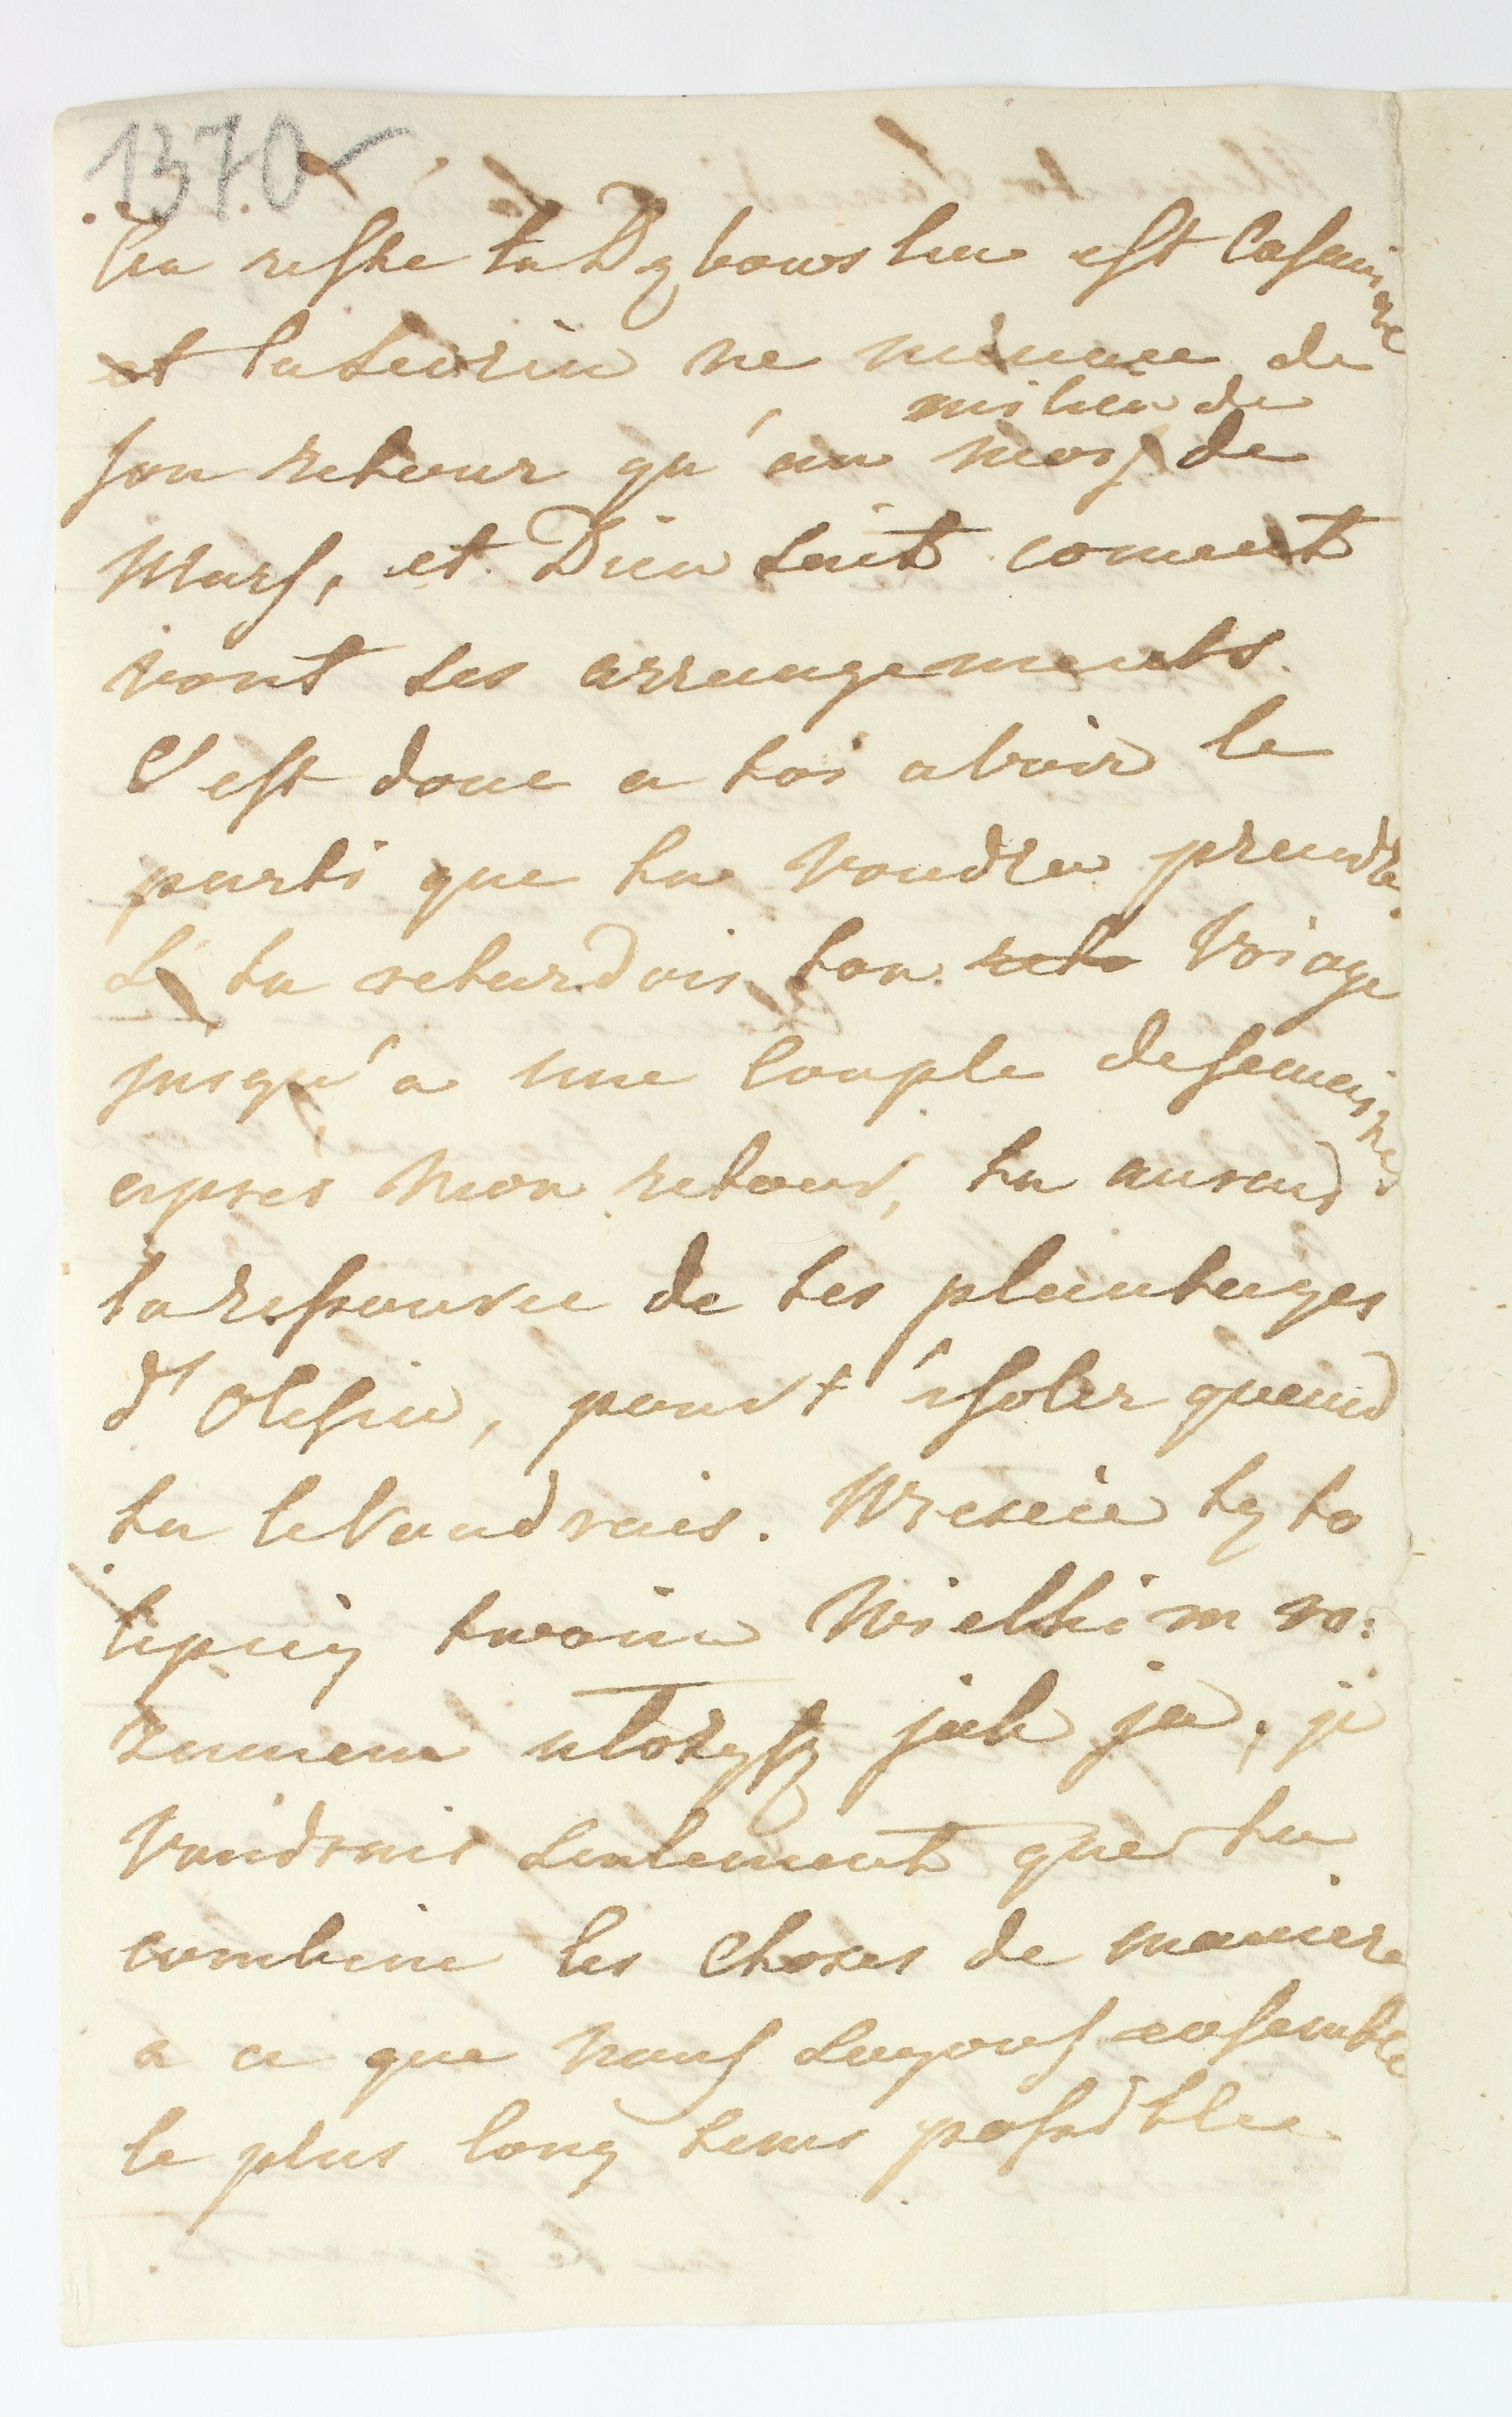 1370
Au reste la Dybowska est Casani
ere
et la Seurin ne menace de
milieu de
son retour qu'au mois de
Mars, et Dieu sait coment
vont ses arrangements.
C'est donc a toi a voir le
parti que tu voudra prendre.
Si tu retardois ton reto Voiage
jusqu'a une couple de semai
nes
apres mon retour, tu aurais
la ressource de tes plantages
d'Olesin, pour t'isoler quand
tu le Vaudrais. Wreście ty to
lepiey twoim Wielkim ro:
zumem ułożysz jak ja, je
Voudrais seulement que tu
combine les choses de maniere
a ce que nous soyons ensemble
le plus long tems possible